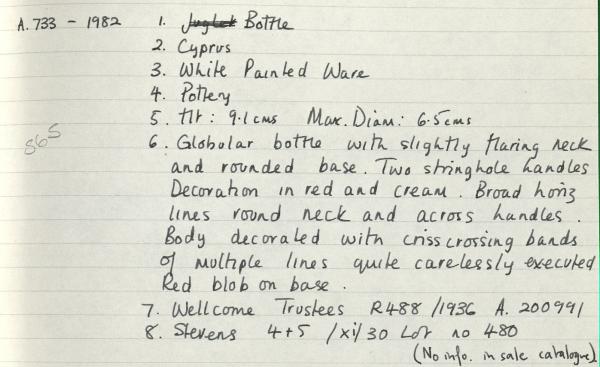 A. 733 - 1982 1. Juglet Bottle
2. Cyprus
3. White Painted Ware
4. Pottery
5. Ht: 9.1cms Max. Diam: 6.5cms
865
6. Globular bottle with slightly flaring neck
and rounded base. Two stringhole handles
Decoration in red and cream. Broad horiz
lines round neck and across handles.
Body decorated with crisscrossing bands
of multiple lines quite carelessly executed
Red blob on base.
7. Wellcome Trustees R488/1936 A. 200991
8. Stevens 4+5 /xi/30 Lot no 480
(No info. in sale catalogue)